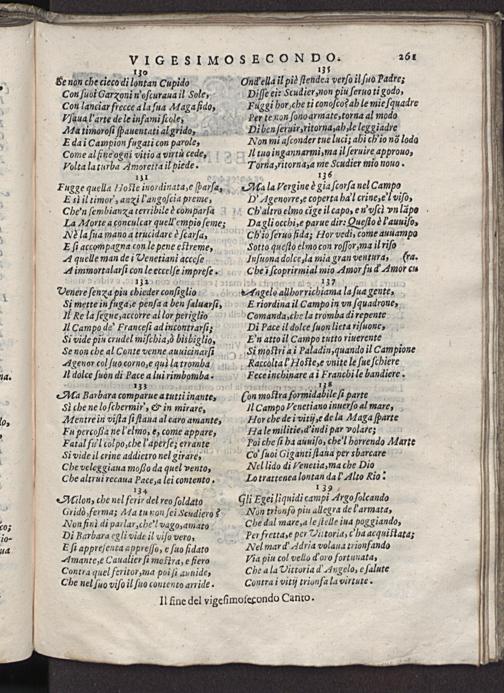 VIGESIMOSECONDO. 261
130
Se non che cieco di lontan Cupido
Con suoi Garzoni n'oscuraua il Sole,
Con lanciar frecce a la sua Maga fido,
Vsaua l'arte de le infami scole,
Ma timorosi spauentati al grido,
E da i Campion fugati con parole,
Come al fine ogni vitio a virtù cede,
Volta la turba Amoretta il piede.
131
Fugge quella Hoste inordinata, e sparsa,
E sì il timor', anzi l'angoscia preme,
Che'n sembianza terribile è comparsa
La Morte a conculcar quell'empio seme;
Nè la sua mano a trucidare è scarsa,
E si accompagna con le pene estreme,
A quelle man de i Venetiani accese
A immortalarsi con le eccelse imprese.
132
Venere senza piu chieder consiglio
Si mette in fuga, e pensa a ben saluarsi,
Il Re la segue, accorre al lor periglio
Il Campo de' Francesi ad incontrarsi;
Si vide più crudel mischia, ò bisbiglio,
Se non che al Conte venne auuicinarsi
Agenor col suo corno, e quì la tromba
Il dolce suon di Pace a lui rimbomba.
133
Ma Barbara comparue a tutti inante,
Sì che ne lo schermir', & in mirare,
Mentre in vista si staua al caro amante,
Fu percossa ne l'elmo, e, come appare,
Fatal fu'l colpo, che l'aperse; errante
Si vide il crine addietro nel girare,
Che veleggiaua mosso da quel vento,
Che altrui recaua Pace, a lei contento.
134
Milon, che nel ferir del reo soldato
Gridò, ferma; Ma tu non sei Scudiero?
Non finì di parlar, che'l vago, amato
Di Barbara egli vide il viso vero,
E si appresenta appresso, e suo fidato
Amante, e Caualier si mostra, e fiero
Contra quel feritor, ma poi si auuide,
Che nel suo viso il suo contento arride.
135
Ond'ella il piè stendea verso il suo Padre;
Disse ei: Scudier, non piu seruo ti godo,
Fuggi hor, che ti conosco? ah le mie squadre
Per te non sono armate, torna al modo
Di ben seruir, ritorna, ah, le leggiadre
Non mi asconder tue luci; ahi ch'io nō lodo
Il tuo ingannarmi, ma il seruire approuo,
Torna, ritorna, a me Scudier mio nouo.
136
Ma la Vergine è già scorsa nel Campo
D'Agenorre, e coperta ha'l crine, e'l viso,
Ch'altro elmo cige il capo, e n'vscì vn lāpo
Da gli occhi, e parue dir: Questo è l'auuiso,
Ch'io seruo fida; Hor vedi, come auuampo
Sotto questo elmo con rossor, ma il riso
In suona dolce, la mia gran ventura, (ra.
Che i scoprirmi al mio Amor fu d'Amor cu
137
Angelo allhor richiama la sua gente,
E riordina il Campo in vn squadrone,
Comanda, che la tromba di repente
Di Pace il dolce suon lieta risuone,
E'n atto il Campo tutto riuerente
Si mostri a i Paladin, quando il Campione
Raccolta l'Hoste, e vnite le sue schiere
Fece inchinare a i Franchi le bandiere.
138
Con mostra formidabile si parte
Il Campo Venetiano inuerso al mare,
Hor che de i vitij, e de la Maga sparte
Ha le militie, d'indi par volare;
Poi che si ha auuiso, che'l horrendo Marte
Co' suoi Giganti staua per sbarcare
Nel lido di Venetia, ma che Dio
Lo trattenea lontan da l'Alto Rio.
139
Gli Egei liquidi campi Argo solcando
Non trionfò piu allegra de l'armata,
Che dal mare, a le stelle iua poggiando,
Per fretta, e per Vittoria, c'ha acquistata;
Nel mar d'Adria volaua trionfando
Via piu col vello d'oro fortunata,
Che a la Vittoria d'Angelo, e salute
Contra i vitij trionfa la virtute.
Il fine del vigesimosecondo Canto.